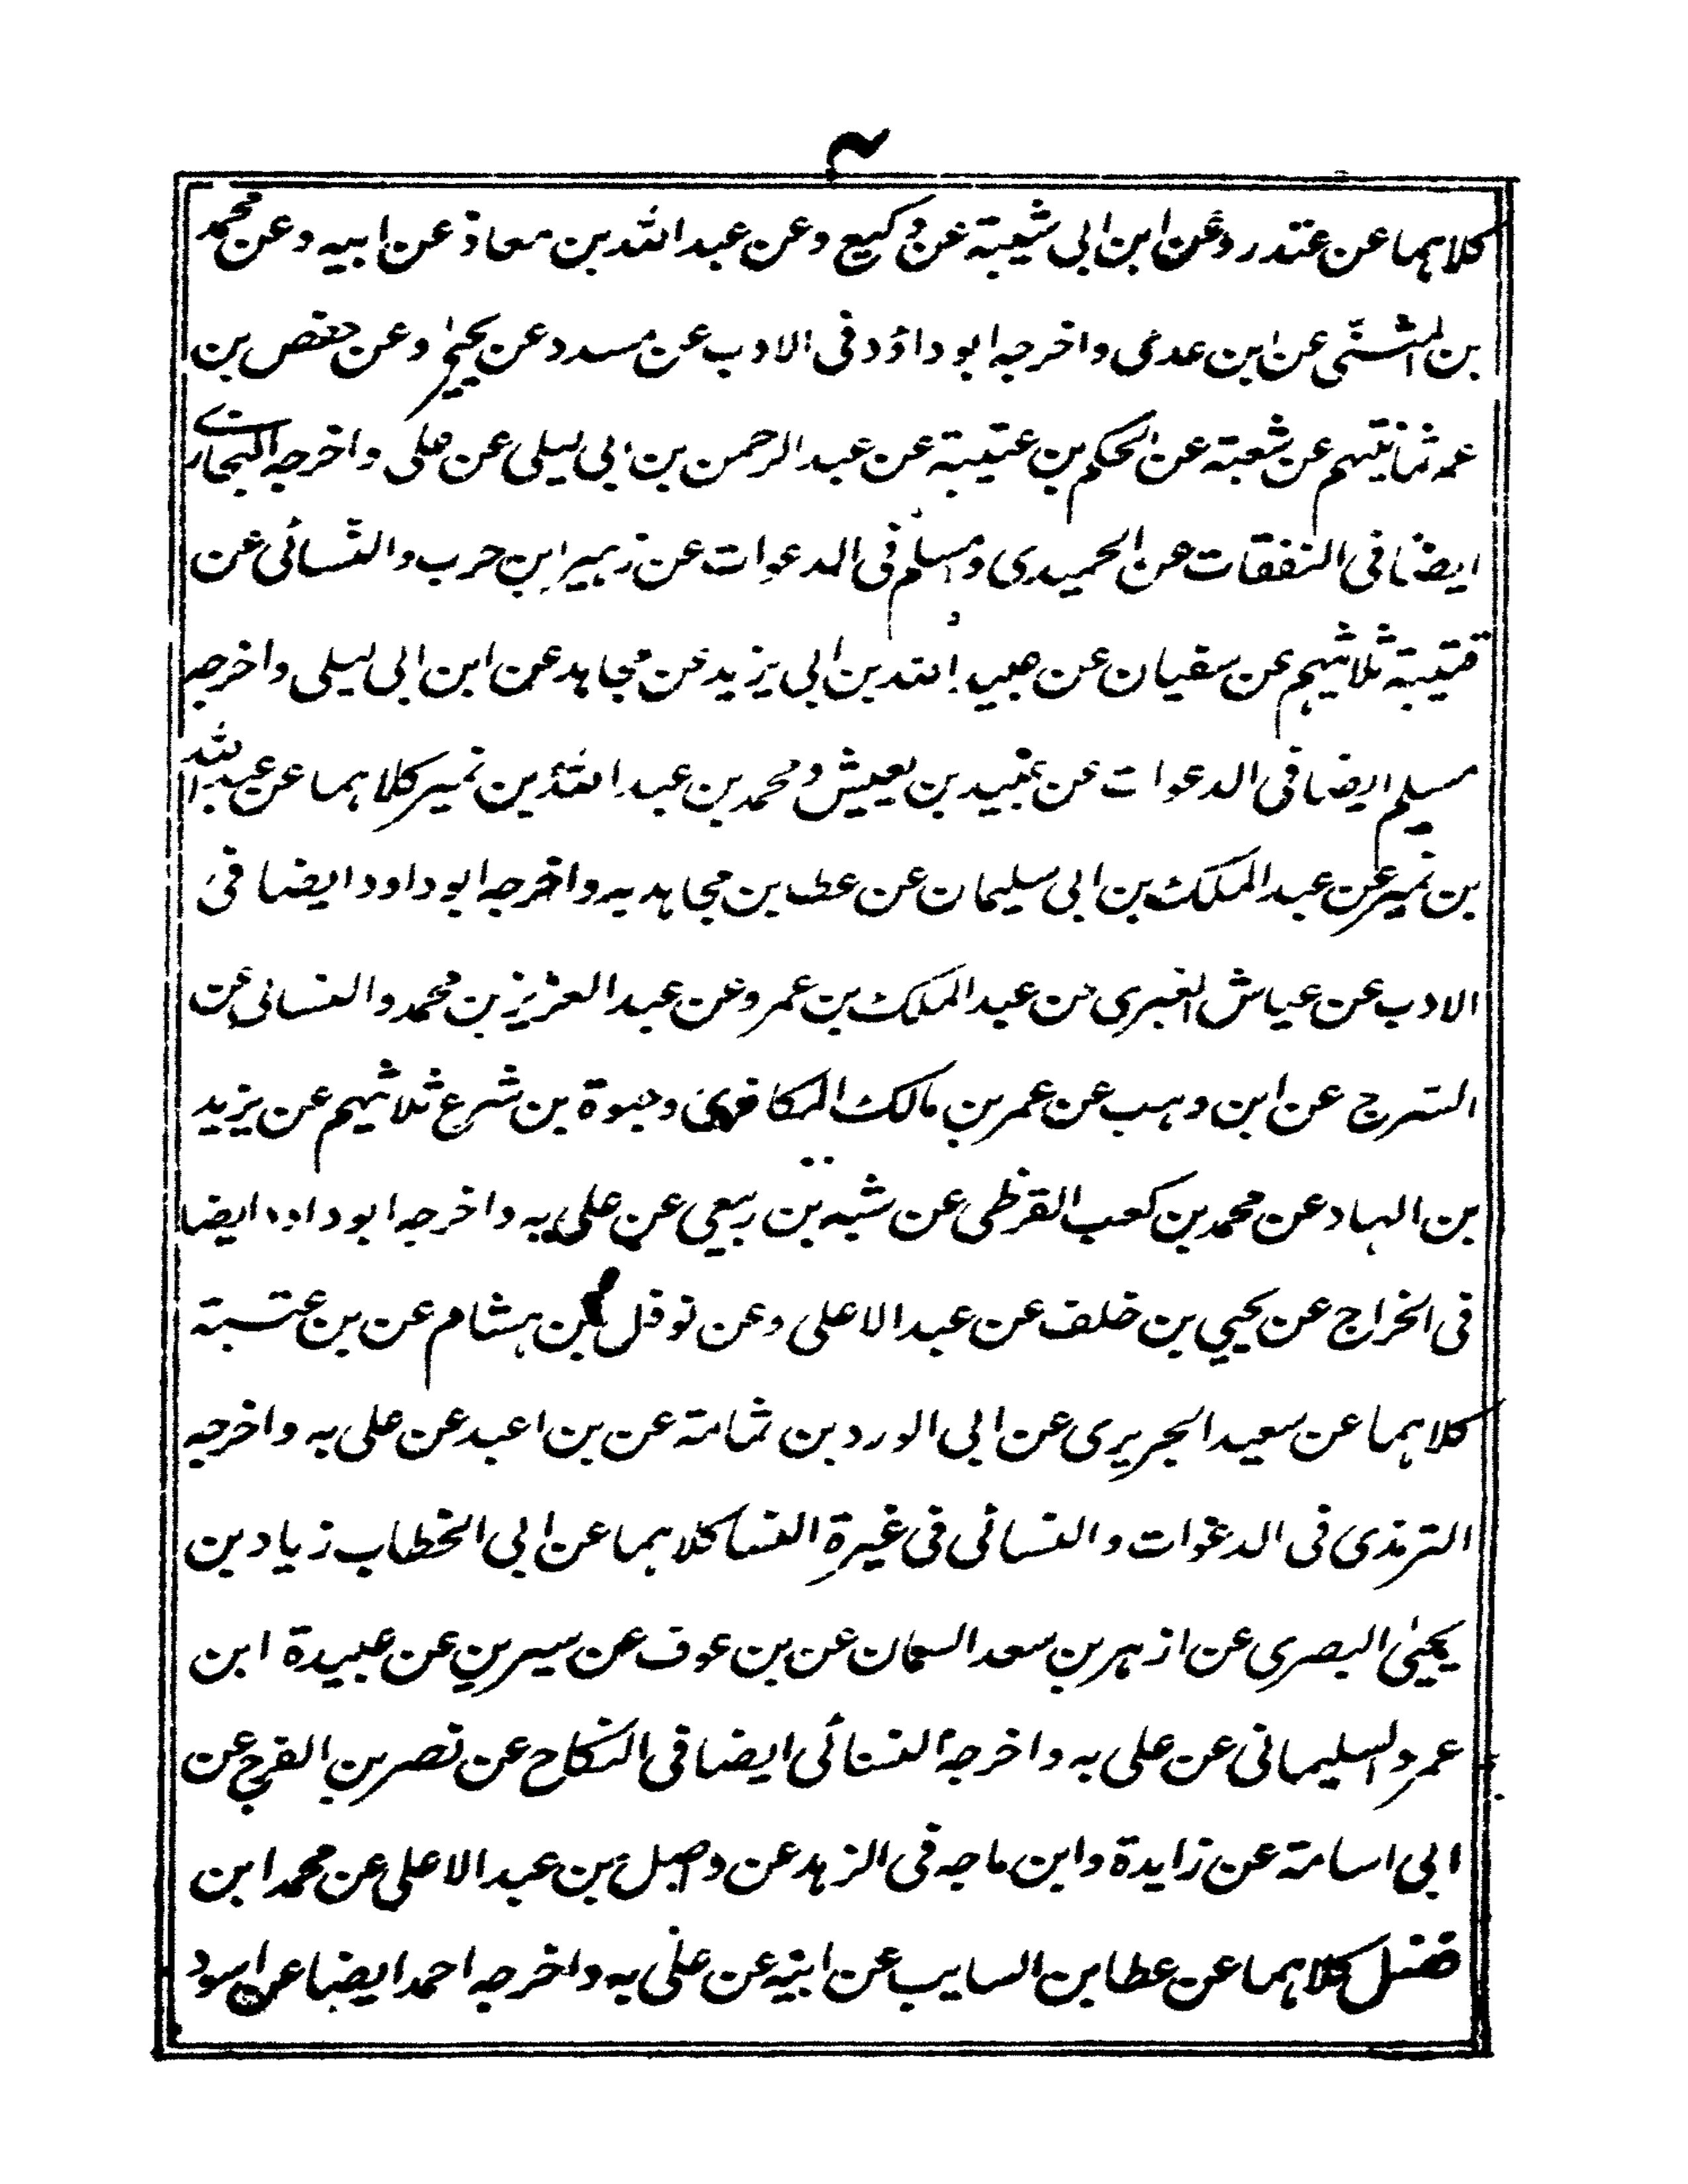 ۴
كلاهما عن عندر وعن ابن ابى شيبة عن وكيع وعن عبد الله بن معاذ عن ابيه وعن محمد
بن المثنى عن ابن عدى واخرجه ابو داؤد فى الادب عن مسدد عن يحيى وعن حفص بن
عمر ثمانيتهم عن شعبة عن الحكم بن عتيبة عن عبد الرحمن بن ابى ليلى عن على واخرجه البخارى
ايضا فى النفقات عن الحميدى ومسلم فى الدعوات عن زهير ابن حرب والنسائى عن
قتيبة ثلاثهم عن سفيان عن عبيد الله بن ابى يزيد عن مجاهد عن ابن ابى ليلى واخرجه
مسلم ايضا فى الدعوات عن عبيد بن يعيش ومحمد بن عبد الله بن نمير كلاهما عن عبد الله
بن نمير عن عبد الملك بن ابى سليمان عن عطا بن مجاهد به واخرجه ابو داود ايضا فى
الادب عن عياش العنبرى عن عبد الملك بن عمر وعن عبد العزيز بن محمد والنسائى عن
السرج عن ابن وهب عن عمر بن مالك المكافرى وحيوة بن شرع ثلاثهم عن يزيد
بن الهاد عن محمد بن كعب القرظى عن شبه بن ربيعي عن على به واخرجه ابو داود ايضا
فى الخراج عن يحيي بن خلف عن عبد الاعلى وعن نوفل بن هشام عن بن عتسبة
كلاهما عن سعيد الجريرى عن ابى الورد بن ثمامة عن بن اعبد عن على به واخرجه
الترمذى فى الدعوات والنسائى فى غيرة النسا كلاهما عن ابى الخطاب زياد بن
يحيىٰ البصرى عن ازهر بن سعد السمان عن بن عوف عن سيرين عن عبيدة ابن
عمر والسليمانى عن على به واخرجه النسائى ايضا فى النكاح عن نصر بن الفرج عن
ابى اسامة عن زايدة وابن ماجه فى الزهد عن واصل بن عبد الاعلى عن محمد ابن
فضل كلاهما عن عطا بن السايب عن ابيه عن على به واخرجه احمد ايضا عن اسود